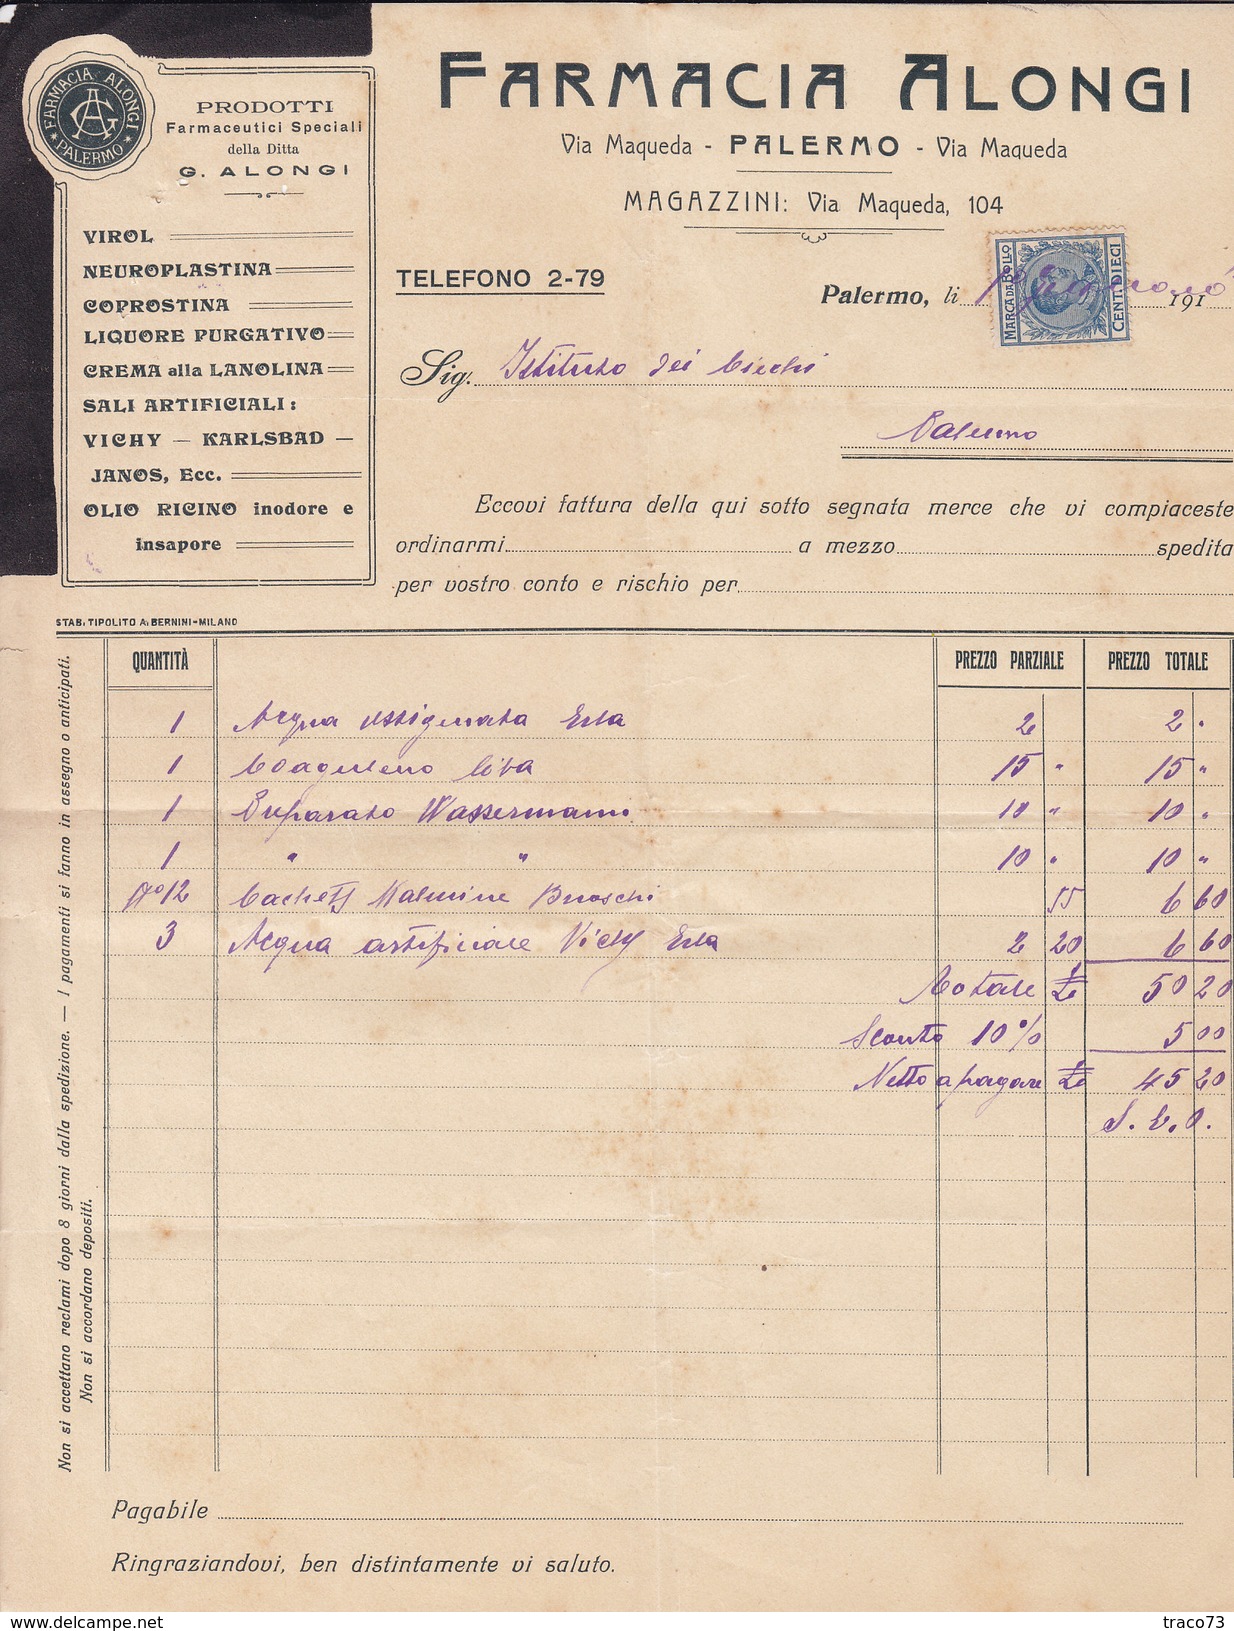 FARMACIA ALONGI
PALERMO
PRODOTTI
Farmaceutici Speciali
della Ditta
G. ALONGI
VIROL
NEUROPLASTINA
COPROSTINA
LIQUORE PURGATIVO
CREMA alla LANOLINA
SALI ARTIFICIALI:
VICHY — KARLSBAD —
JANOS, Ecc.
OLIO RICINO inodore e
insapore
FARMACIA ALONGI
Via Maqueda - PALERMO - Via Maqueda
MAGAZZINI: Via Maqueda, 104
TELEFONO 2-79
MARCA DA BOLLO
CENT. DIECI
Palermo, li 191
Sig. Istituto dei Ciechi
Palermo
Eccovi fattura della qui sotto segnata merce che vi compiaceste
ordinarmi a mezzo spedita
per vostro conto e rischio per
STAB. TIPOLITO A. BERNINI-MILANO
QUANTITÀ PREZZO PARZIALE PREZZO TOTALE
1 Acqua ossigenata Erba 2 2 "
1 Coaguleno Ciba 15 " 15 "
1 Preparato Wassermann 10 " 10 "
1 " " 10 " 10 "
No 12 Cachets Kalmine 55 6 60
3 Acqua artificiale Vichy Erba 2 20 6 60
Totale £ 50 20
Sconto 10% 5 00
Netto a pagare £ 45 20
S. E. O.
Non si accettano reclami dopo 8 giorni dalla spedizione. — I pagamenti si fanno in assegno o anticipati.
Non si accordano depositi.
Pagabile
Ringraziandovi, ben distintamente vi saluto.
delcampe.net
traco73